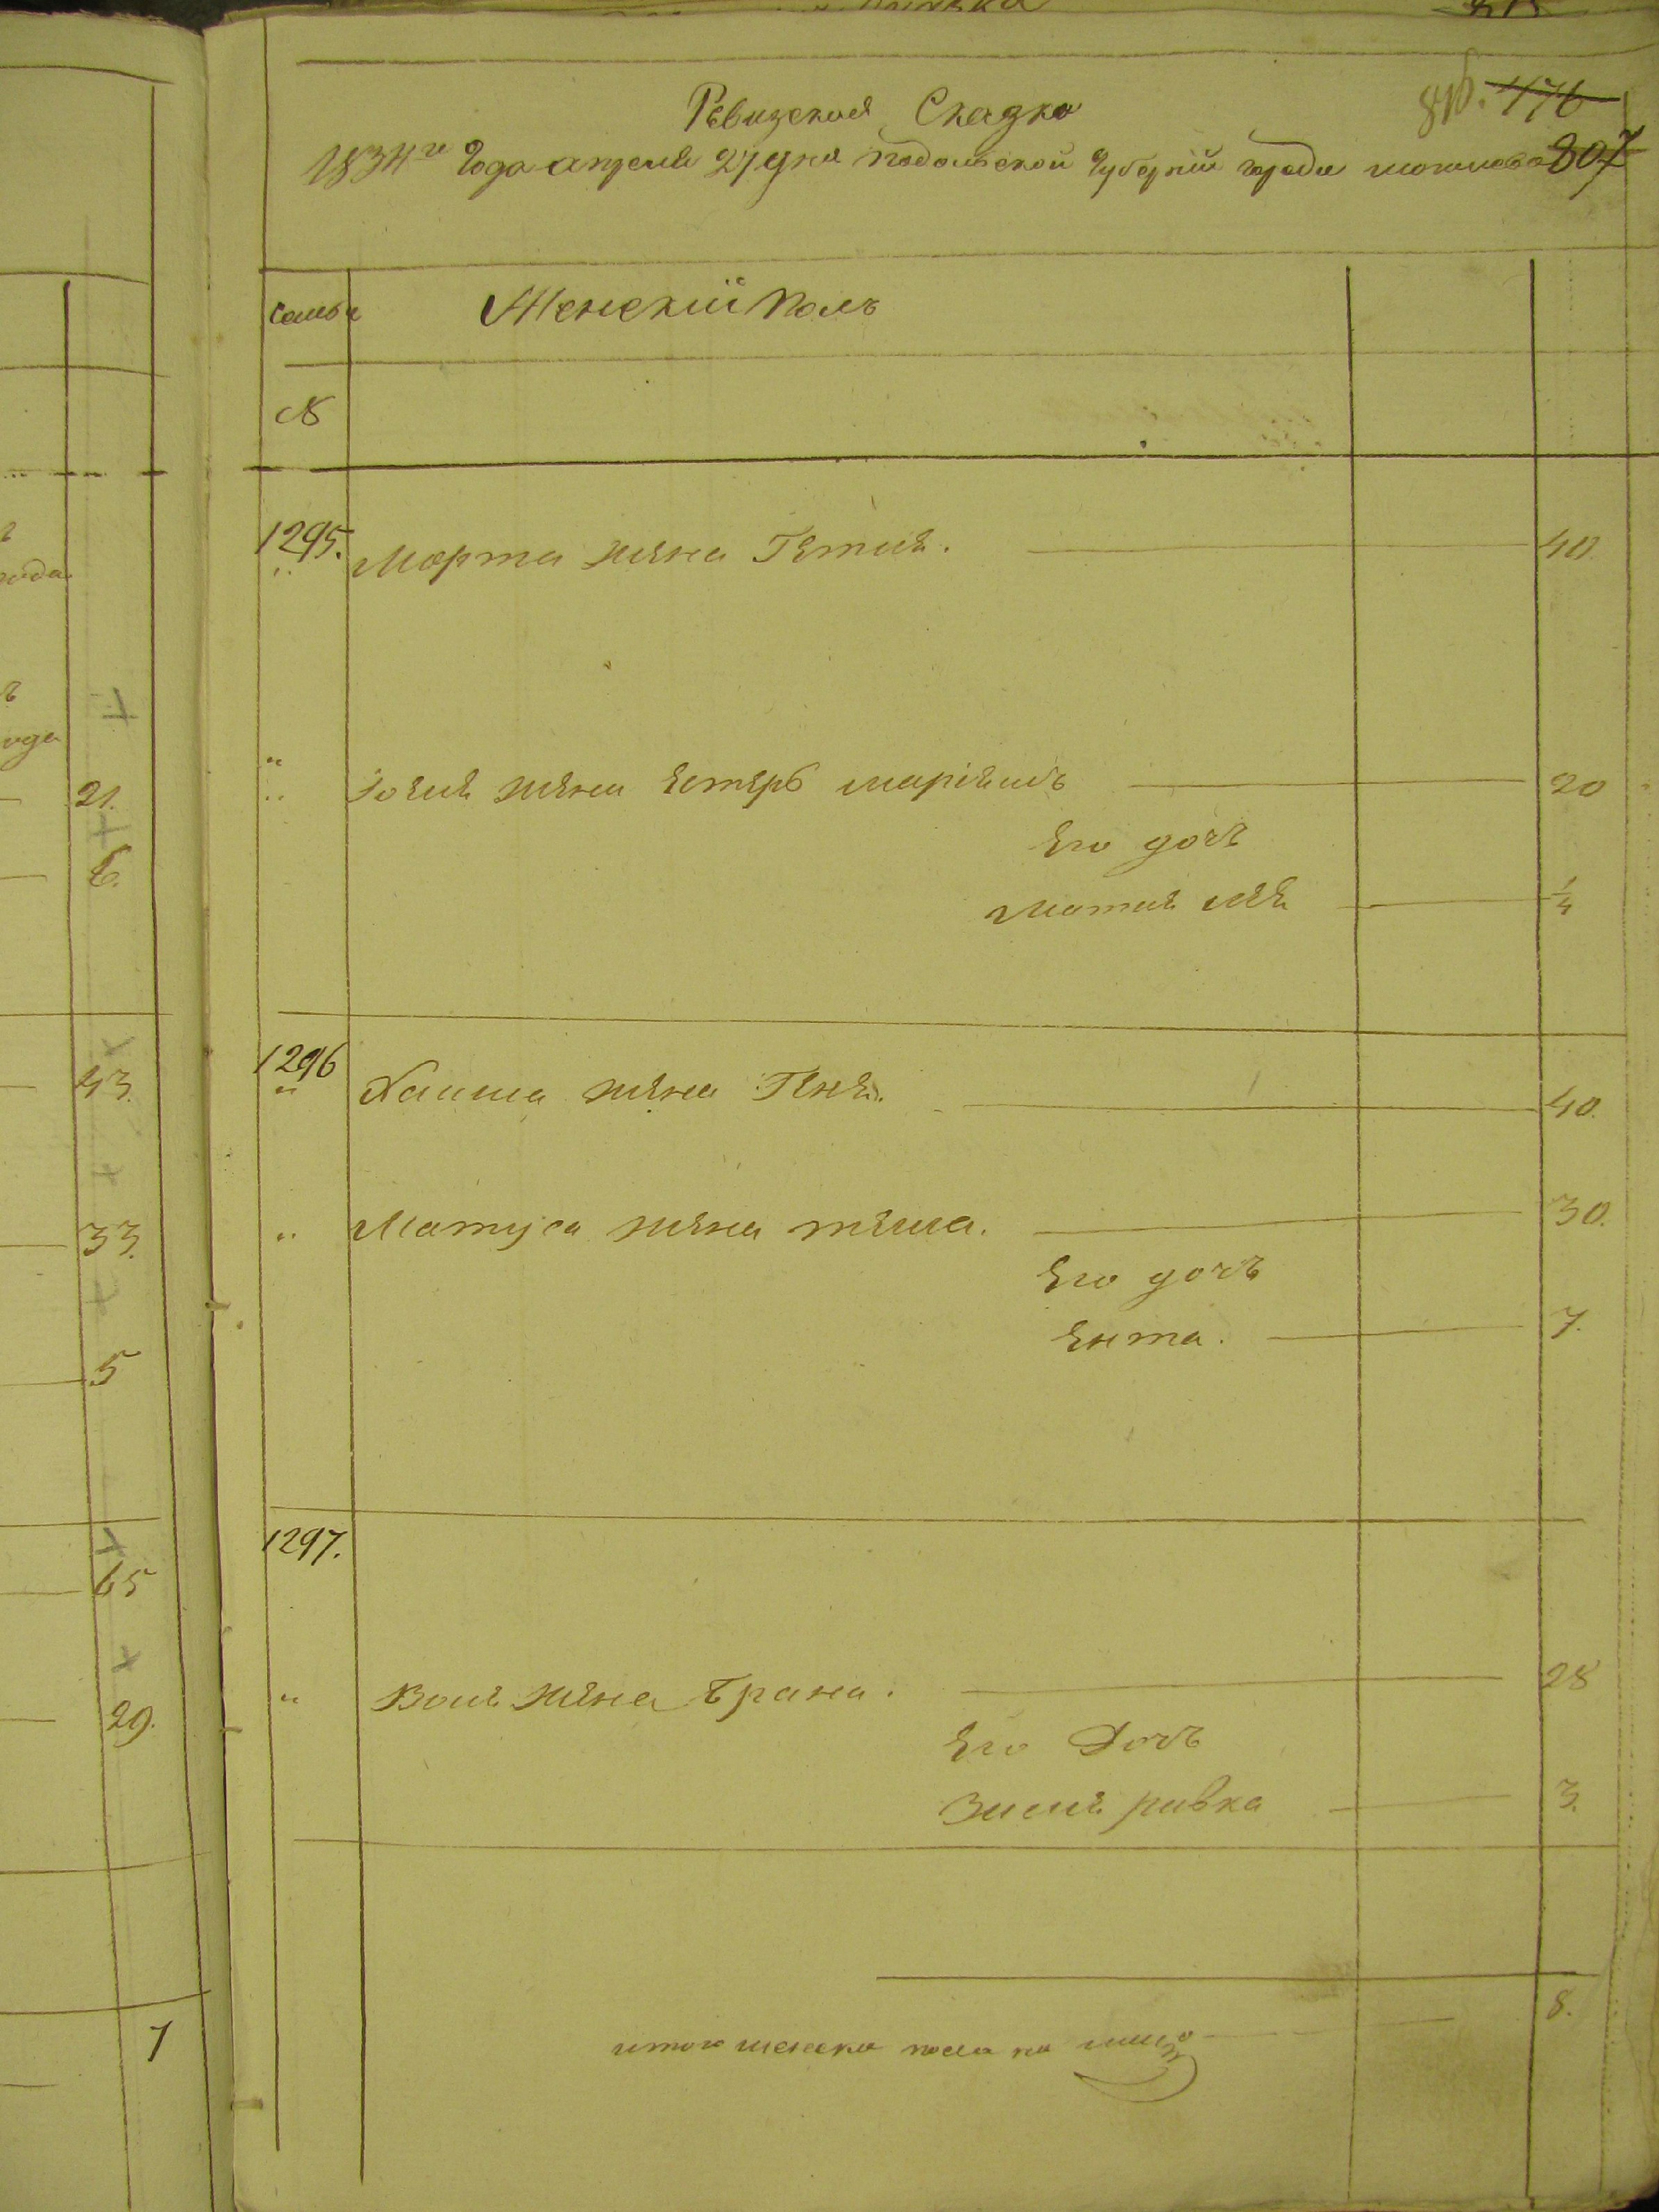 Ревизская Сказка
1834го Года апреля 27 дня подольской Губернии города могилева
476
807
семьи Женский Полъ
N
1295. Морта жена Гитля. 40.
жена естеръ марiямъ 20
его дочъ
Матля лея 1/4
1296 Хаима жена Геня. 40.
Матуса жена тема. 30.
его дочъ
ента. 7.
1297.
Воля жена Брана. 28
его Дочъ
Зисля ривка 3.
итого женска пола на лицо 8.
21.
6.
43.
33.
5
65
29.
7